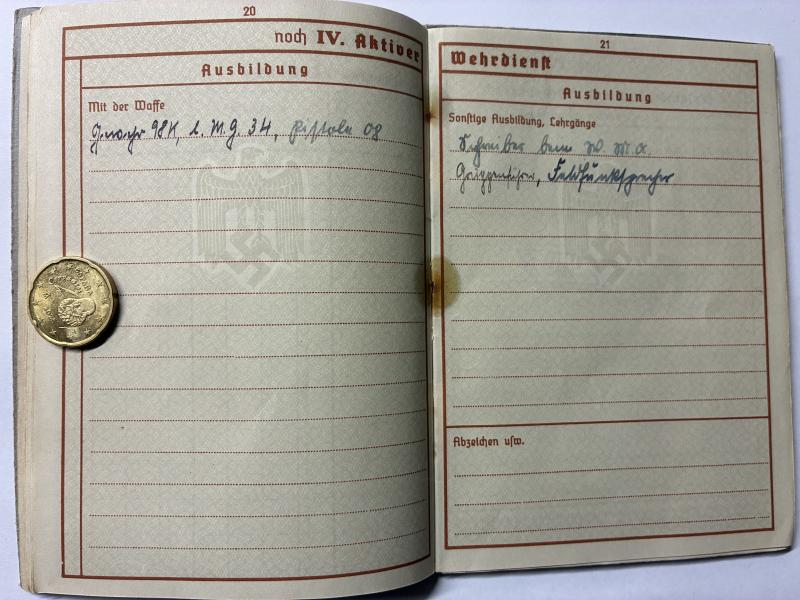 20
noch IV. Aktiver
Ausbildung
Mit der Waffe
Gewehr 98K, l. M.G. 34, Pistole 08
21
Wehrdienst
Ausbildung
Sonstige Ausbildung, Lehrgänge
Schreiber beim W. M. A.
Gruppenführer, Feldfunksprecher
Abzeichen usw.